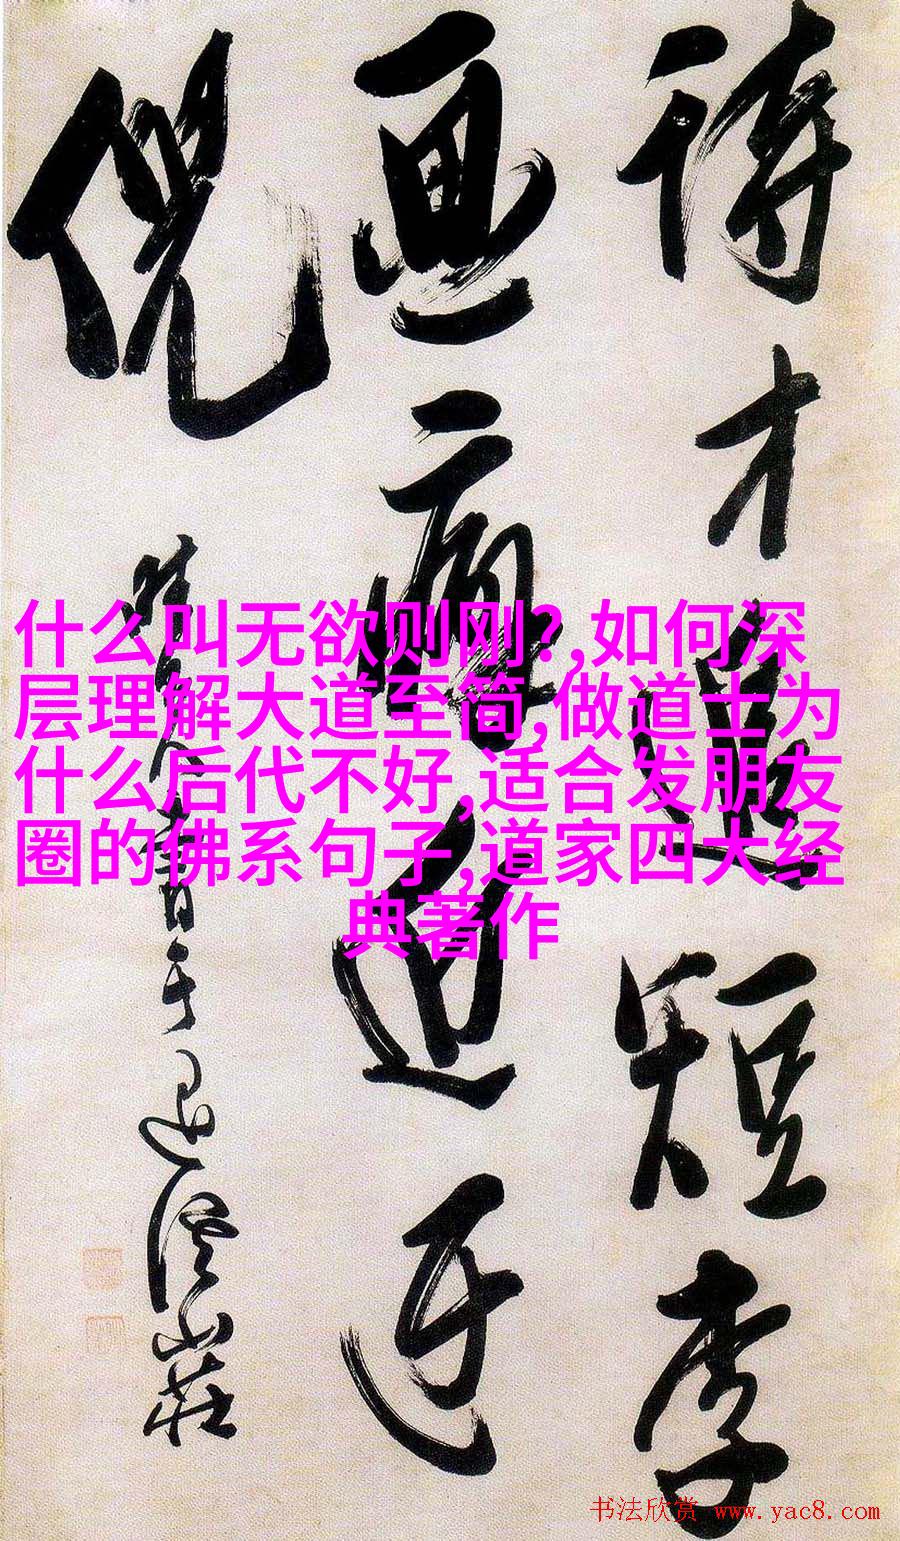 诗才追短李
画癖近迂
倪
什么叫无欲则刚?,如何深
层理解大道至简,做道士为
什么后代不好,适合发朋友
圈的佛系句子,道家四大经
典著作
书法欣赏 www.yac8.com